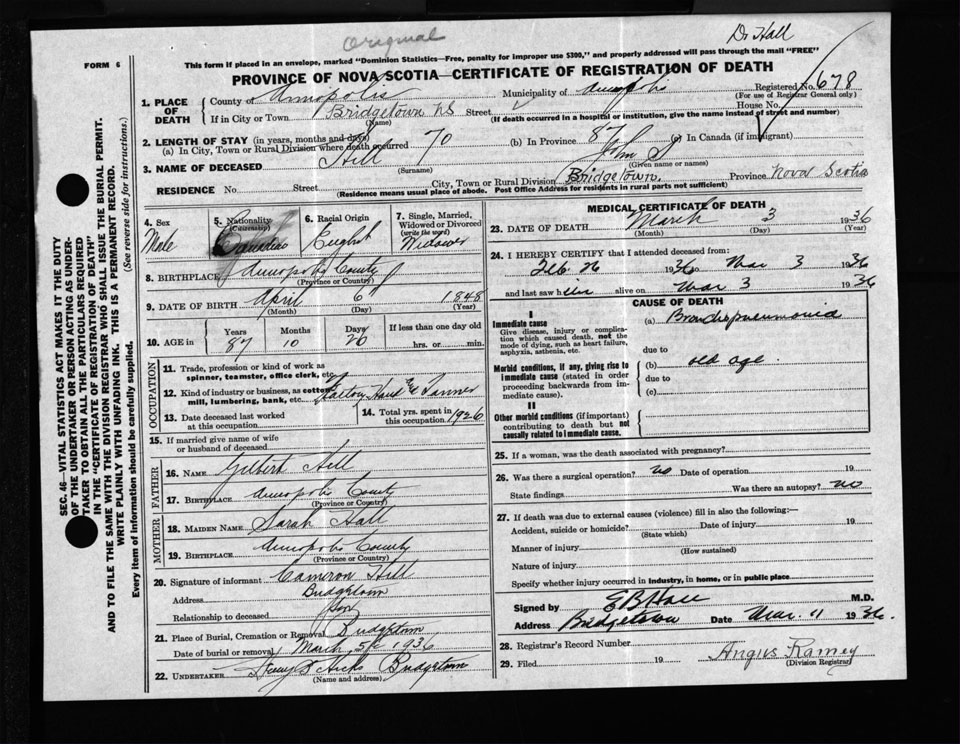 Original
Dr Hall
FORM 6
This form if placed in an envelope, marked "Dominion Statistics—Free, penalty for improper use $300," and properly addressed will pass through the mail "FREE"
PROVINCE OF NOVA SCOTIA—CERTIFICATE OF REGISTRATION OF DEATH
Registered No. 678
(For use of Registrar General only)
1. PLACE OF DEATH County of Annapolis Municipality of Annapolis
If in City or Town Bridgetown NS Street House No.
(Name) (If death occurred in a hospital or institution, give the name instead of street and number)
2. LENGTH OF STAY (in years, months and days)
(a) In City, Town or Rural Division where death occurred 70 (b) In Province 87 (c) In Canada (if immigrant)
3. NAME OF DECEASED Hill John S
(Surname) (Given name or names)
RESIDENCE No. Street City, Town or Rural Division Bridgetown. Province Nova Scotia
(Residence means usual place of abode. Post Office Address for residents in rural parts not sufficient)
SEC. 46—VITAL STATISTICS ACT MAKES IT THE DUTY
OF THE UNDERTAKER OR PERSON ACTING AS UNDER-
TAKER TO OBTAIN ALL THE PARTICULARS REQUIRED
IN THE "CERTIFICATE OF REGISTRATION OF DEATH"
AND TO FILE THE SAME WITH THE DIVISION REGISTRAR WHO SHALL ISSUE THE BURIAL PERMIT.
WRITE PLAINLY WITH UNFADING INK. THIS IS A PERMANENT RECORD.
Every item of information should be carefully supplied. (See reverse side for instructions.)
4. Sex
Male
5. Nationality
(Citizenship)
Canadian
6. Racial Origin
English
7. Single, Married, Widowed or Divorced
(write the word)
Widower
8. BIRTHPLACE Annapolis County
(Province or Country)
9. DATE OF BIRTH April 6 1848
(Month) (Day) (Year)
10. AGE in Years Months Days If less than one day old
87 10 26 hrs. or min.
OCCUPATION
11. Trade, profession or kind of work as
spinner, teamster, office clerk, etc.
12. Kind of industry or business, as cotton
mill, lumbering, bank, etc. Farmer
13. Date deceased last worked
at this occupation
14. Total yrs. spent in
this occupation 1926
15. If married give name of wife
or husband of deceased
FATHER
16. NAME Gilbert Hill
17. BIRTHPLACE Annapolis County
(Province or Country)
MOTHER
18. MAIDEN NAME Sarah Hall
19. BIRTHPLACE Annapolis County
(Province or Country)
20. Signature of informant Cameron Hill
Address Bridgetown
Relationship to deceased Son
21. Place of Burial, Cremation or Removal Bridgetown
Date of burial or removal March 5th 1936
22. UNDERTAKER Hicks Bridgetown
(Name and address)
MEDICAL CERTIFICATE OF DEATH
23. DATE OF DEATH March 3 1936
(Month) (Day) (Year)
24. I HEREBY CERTIFY that I attended deceased from:
Feb 26 1936 to Mar 3 1936
and last saw h alive on Mar 3 1936
CAUSE OF DEATH
I
Immediate cause (a) Bronchopneumonia
Give disease, injury or complica-
tion which caused death, not the
mode of dying, such as heart failure,
asphyxia, asthenia, etc.
due to
Morbid conditions, if any, giving rise to (b) old age
immediate cause (stated in order due to
proceeding backwards from im-
mediate cause). (c)
II
Other morbid conditions (if important)
contributing to death but not
causally related to immediate cause.
25. If a woman, was the death associated with pregnancy?
26. Was there a surgical operation? no Date of operation 19
State findings Was there an autopsy? no
27. If death was due to external causes (violence) fill in also the following:—
Accident, suicide or homicide? Date of injury 19
(State which)
Manner of injury
(How sustained)
Nature of injury
Specify whether injury occurred in industry, in home, or in public place
Signed by E B Hall M.D.
Address Bridgetown Date Mar. 11 1936.
28. Registrar's Record Number
29. Filed 19 Angus Ramey
(Division Registrar)